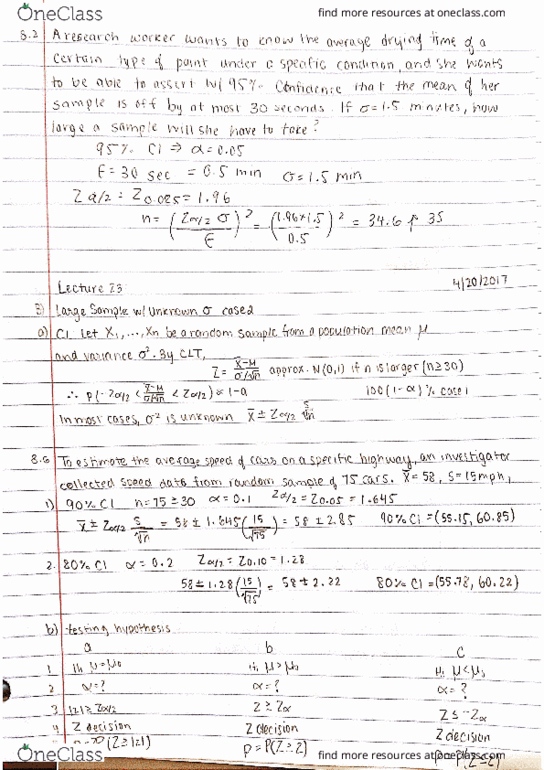 OneClass
find more resources at oneclass.com
8.2 A research worker wants to know the average drying time of a
certain type of paint under a specific condition, and she wants
to be able to assert w/ 95% confidence that the mean of her
sample is off by at most 30 seconds. If σ=1.5 minutes, how
large a sample will she have to take?
95% CI ⇒ α=0.05
E=30 sec = 0.5 min σ=1.5 min
Zα/2 = Z0.025 = 1.96
n= (Zα/2 σ / E)² = (1.96*1.5 / 0.5)² = 34.6 ↑ 35
Lecture 23 4/20/2017
3) Large Sample w/ unknown σ case 2
a) CI. Let X₁,...,Xn be a random sample from a population mean μ
and variance σ². By CLT,
Z= (X̄-μ)/(σ/√n) approx. N(0,1) if n is larger (n≥30)
∴ P(-Zα/2 < (X̄-μ)/(σ/√n) < Zα/2) ≈ 1-α 100(1-α)% case 1
In most cases, σ² is unknown X̄ ± Zα/2 S/√n
8.6 To estimate the average speed of cars on a specific highway, an investigator
collected speed data from random sample of 75 cars. X̄=58, S=15mph,
1) 90% CI n=75≥30 α=0.1 Zα/2=Z0.05=1.645
X̄ ± Zα/2 S/√n = 58 ± 1.645(15/√75) = 58 ± 2.85 90% CI =(55.15, 60.85)
2. 80% CI α=0.2 Zα/2=Z0.10=1.28
58 ± 1.28(15/√75) = 58 ± 2.22 80% CI =(55.78, 60.22)
b) testing hypothesis
a b c
1 H₁ μ≠μ₀ H₁ μ>μ₀ H₁ μ<μ₀
2 α=? α=? α=?
3 |Z|≥Zα/2 Z≥Zα Z≤-Zα
4 Z decision Z decision Z decision
P(Z≥|z|) P=P(Z≥z)
OneClass
find more resources at oneclass.com